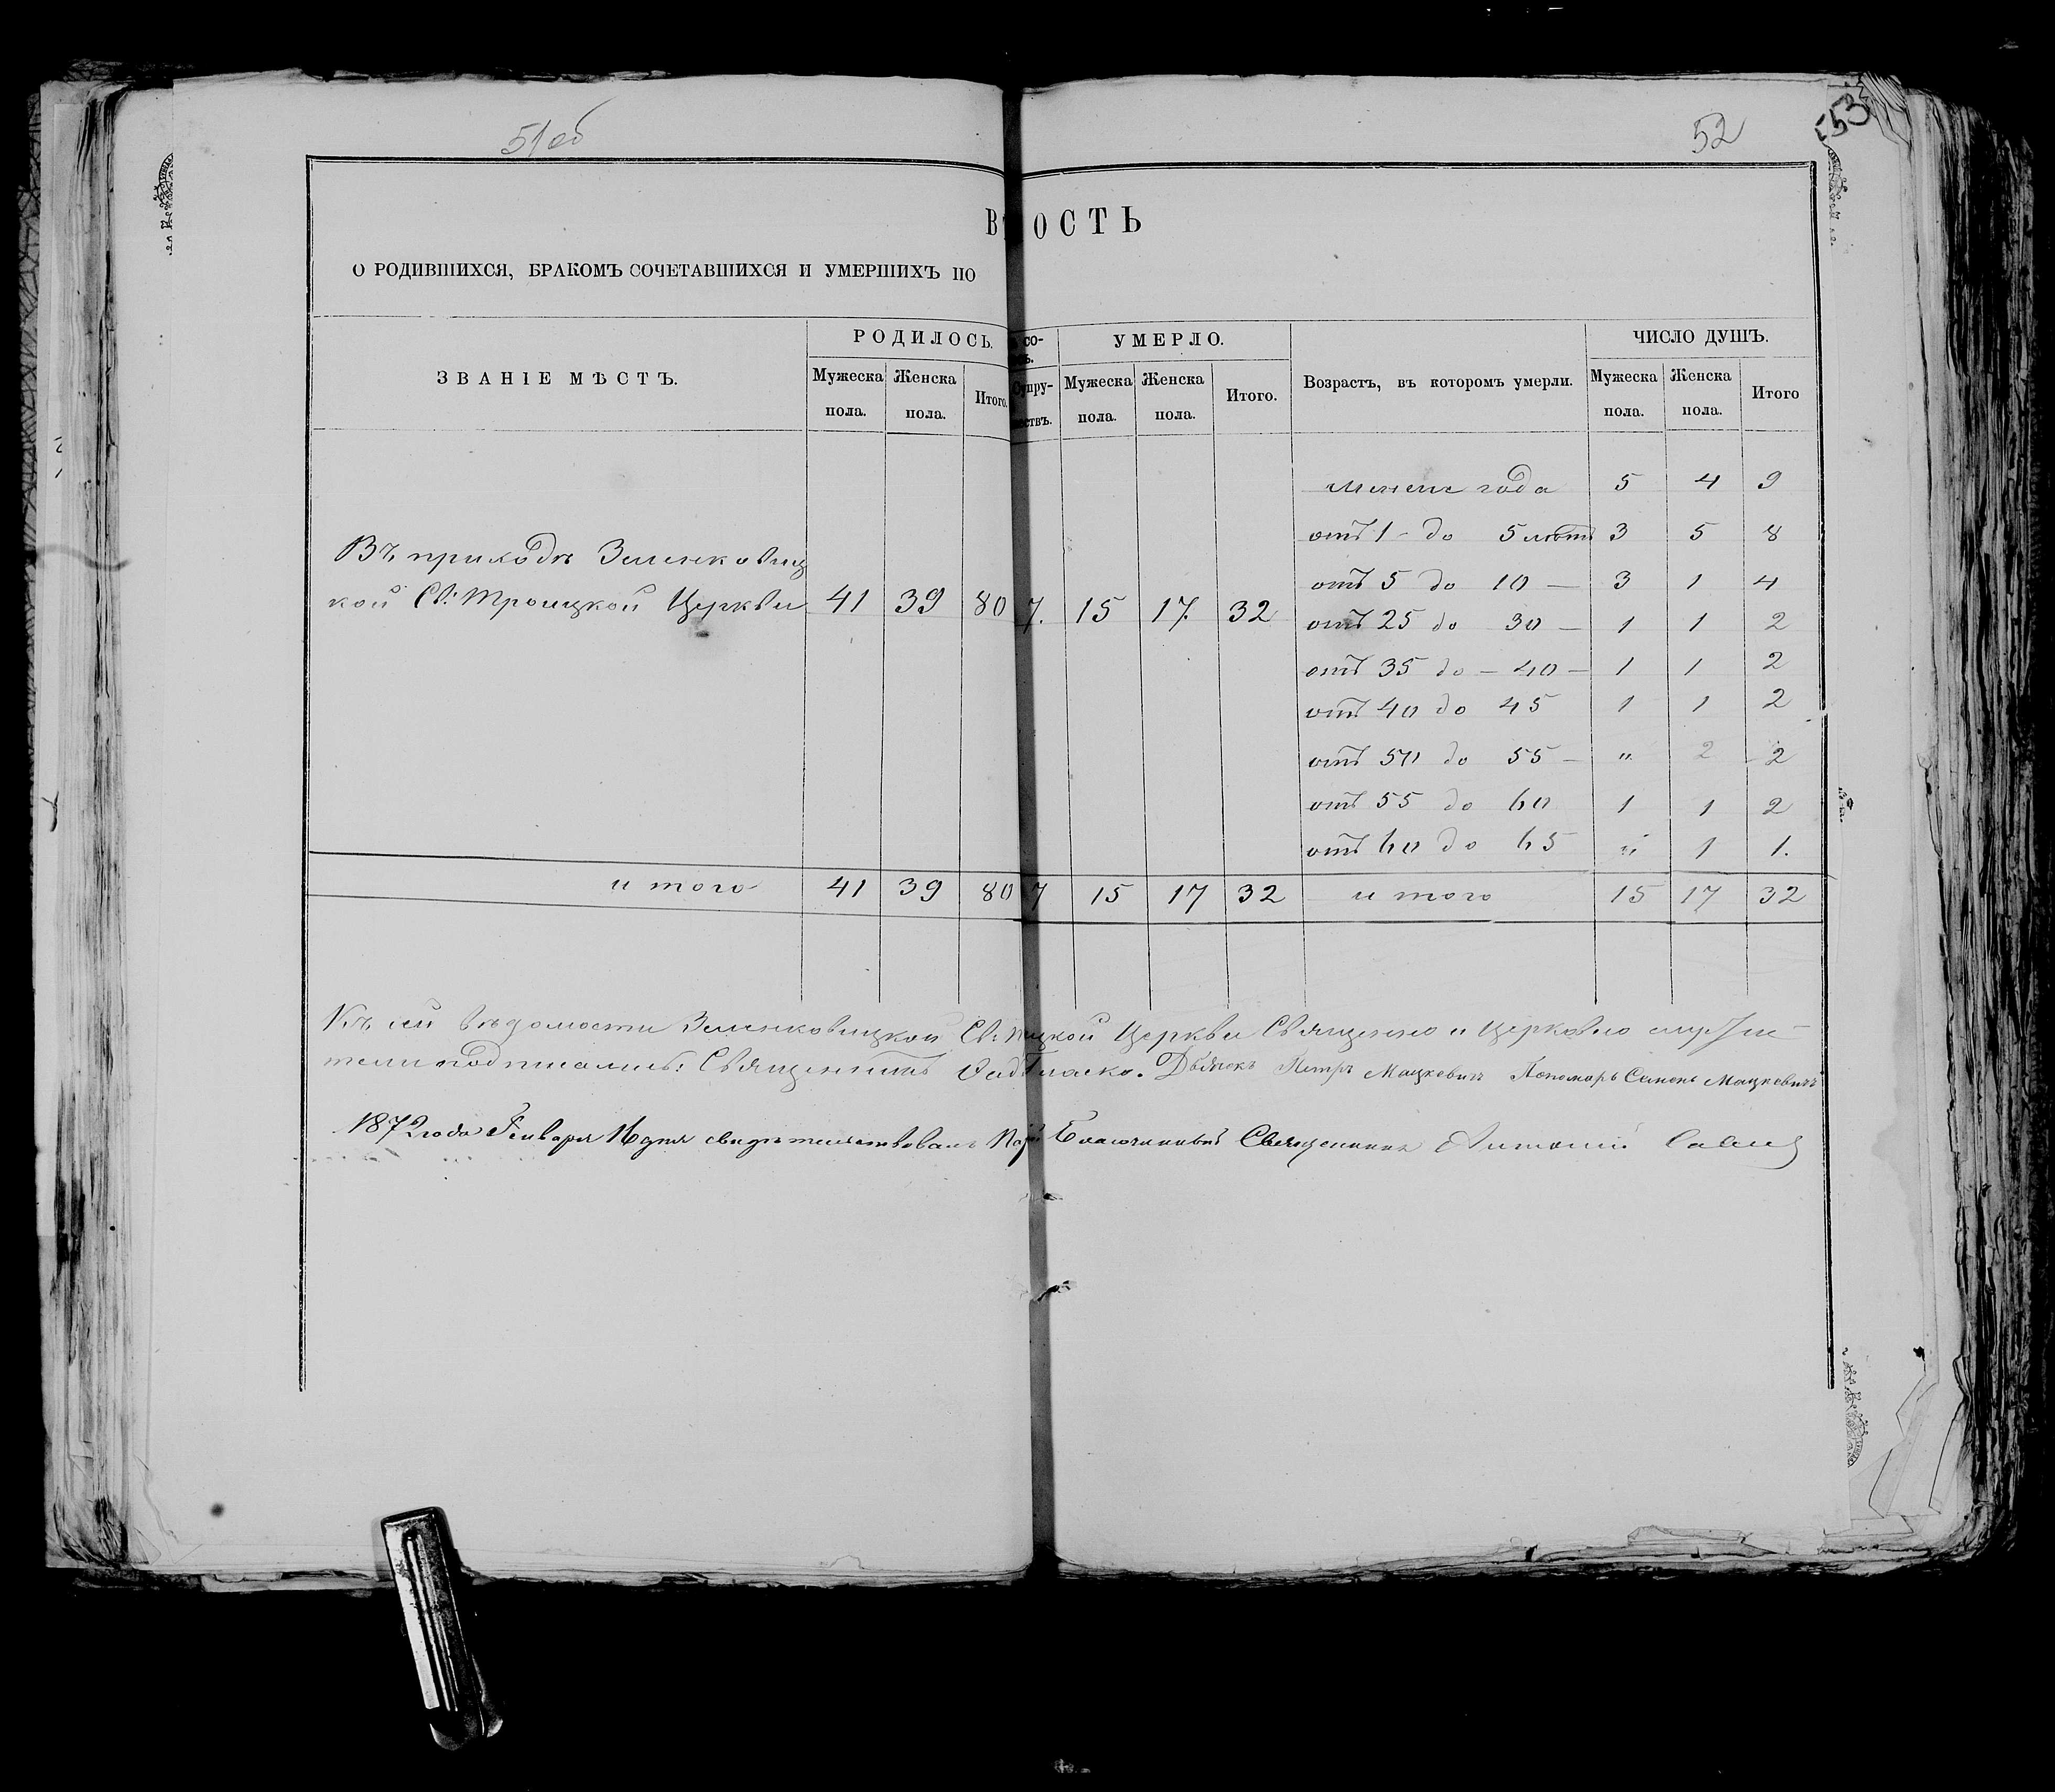 51об
52
553
В ОСТЬ
О РОДИВШИХСЯ, БРАКОМЪ СОЧЕТАВШИХСЯ И УМЕРШИХЪ ПО
ЗВАНІЕ МѢСТЪ. РОДИЛОСЬ. СО- УМЕРЛО. Возрастъ, въ которомъ умерли. ЧИСЛО ДУШЪ.
Мужеска Женска Итого. Супру- Мужеска Женска Итого. Мужеска Женска Итого
пола. пола. ствъ. пола. пола. пола. пола.
менѣе года 5 4 9
отъ 1 - до 5 лѣтъ 3 5 8
Въ приходѣ Зеленковиц
отъ 5 до 10 — 3 1 4
кой Св: Троицкой Церкви 41 39 80 7. 15 17. 32
отъ 25 до 30 — 1 1 2
отъ 35 до — 40 — 1 1 2
отъ 40 до 45 1 1 2
отъ 50 до 55 — " 2 2
отъ 55 до 60 1 1 2
отъ 60 до 65 " 1 1.
и того 41 39 80 7 15 17 32 и того 15 17 32
Къ сей вѣдомости Зеленковицкой Св: цкой Церкви Священно и Церковно служи-
тели подписались: Священникъ Дьячокъ Петръ Мацкевичъ Пономарь Семенъ Мацкевичъ
1872 года Генваря дня свидѣтельствовалъ Благочинный Священникъ Антоній